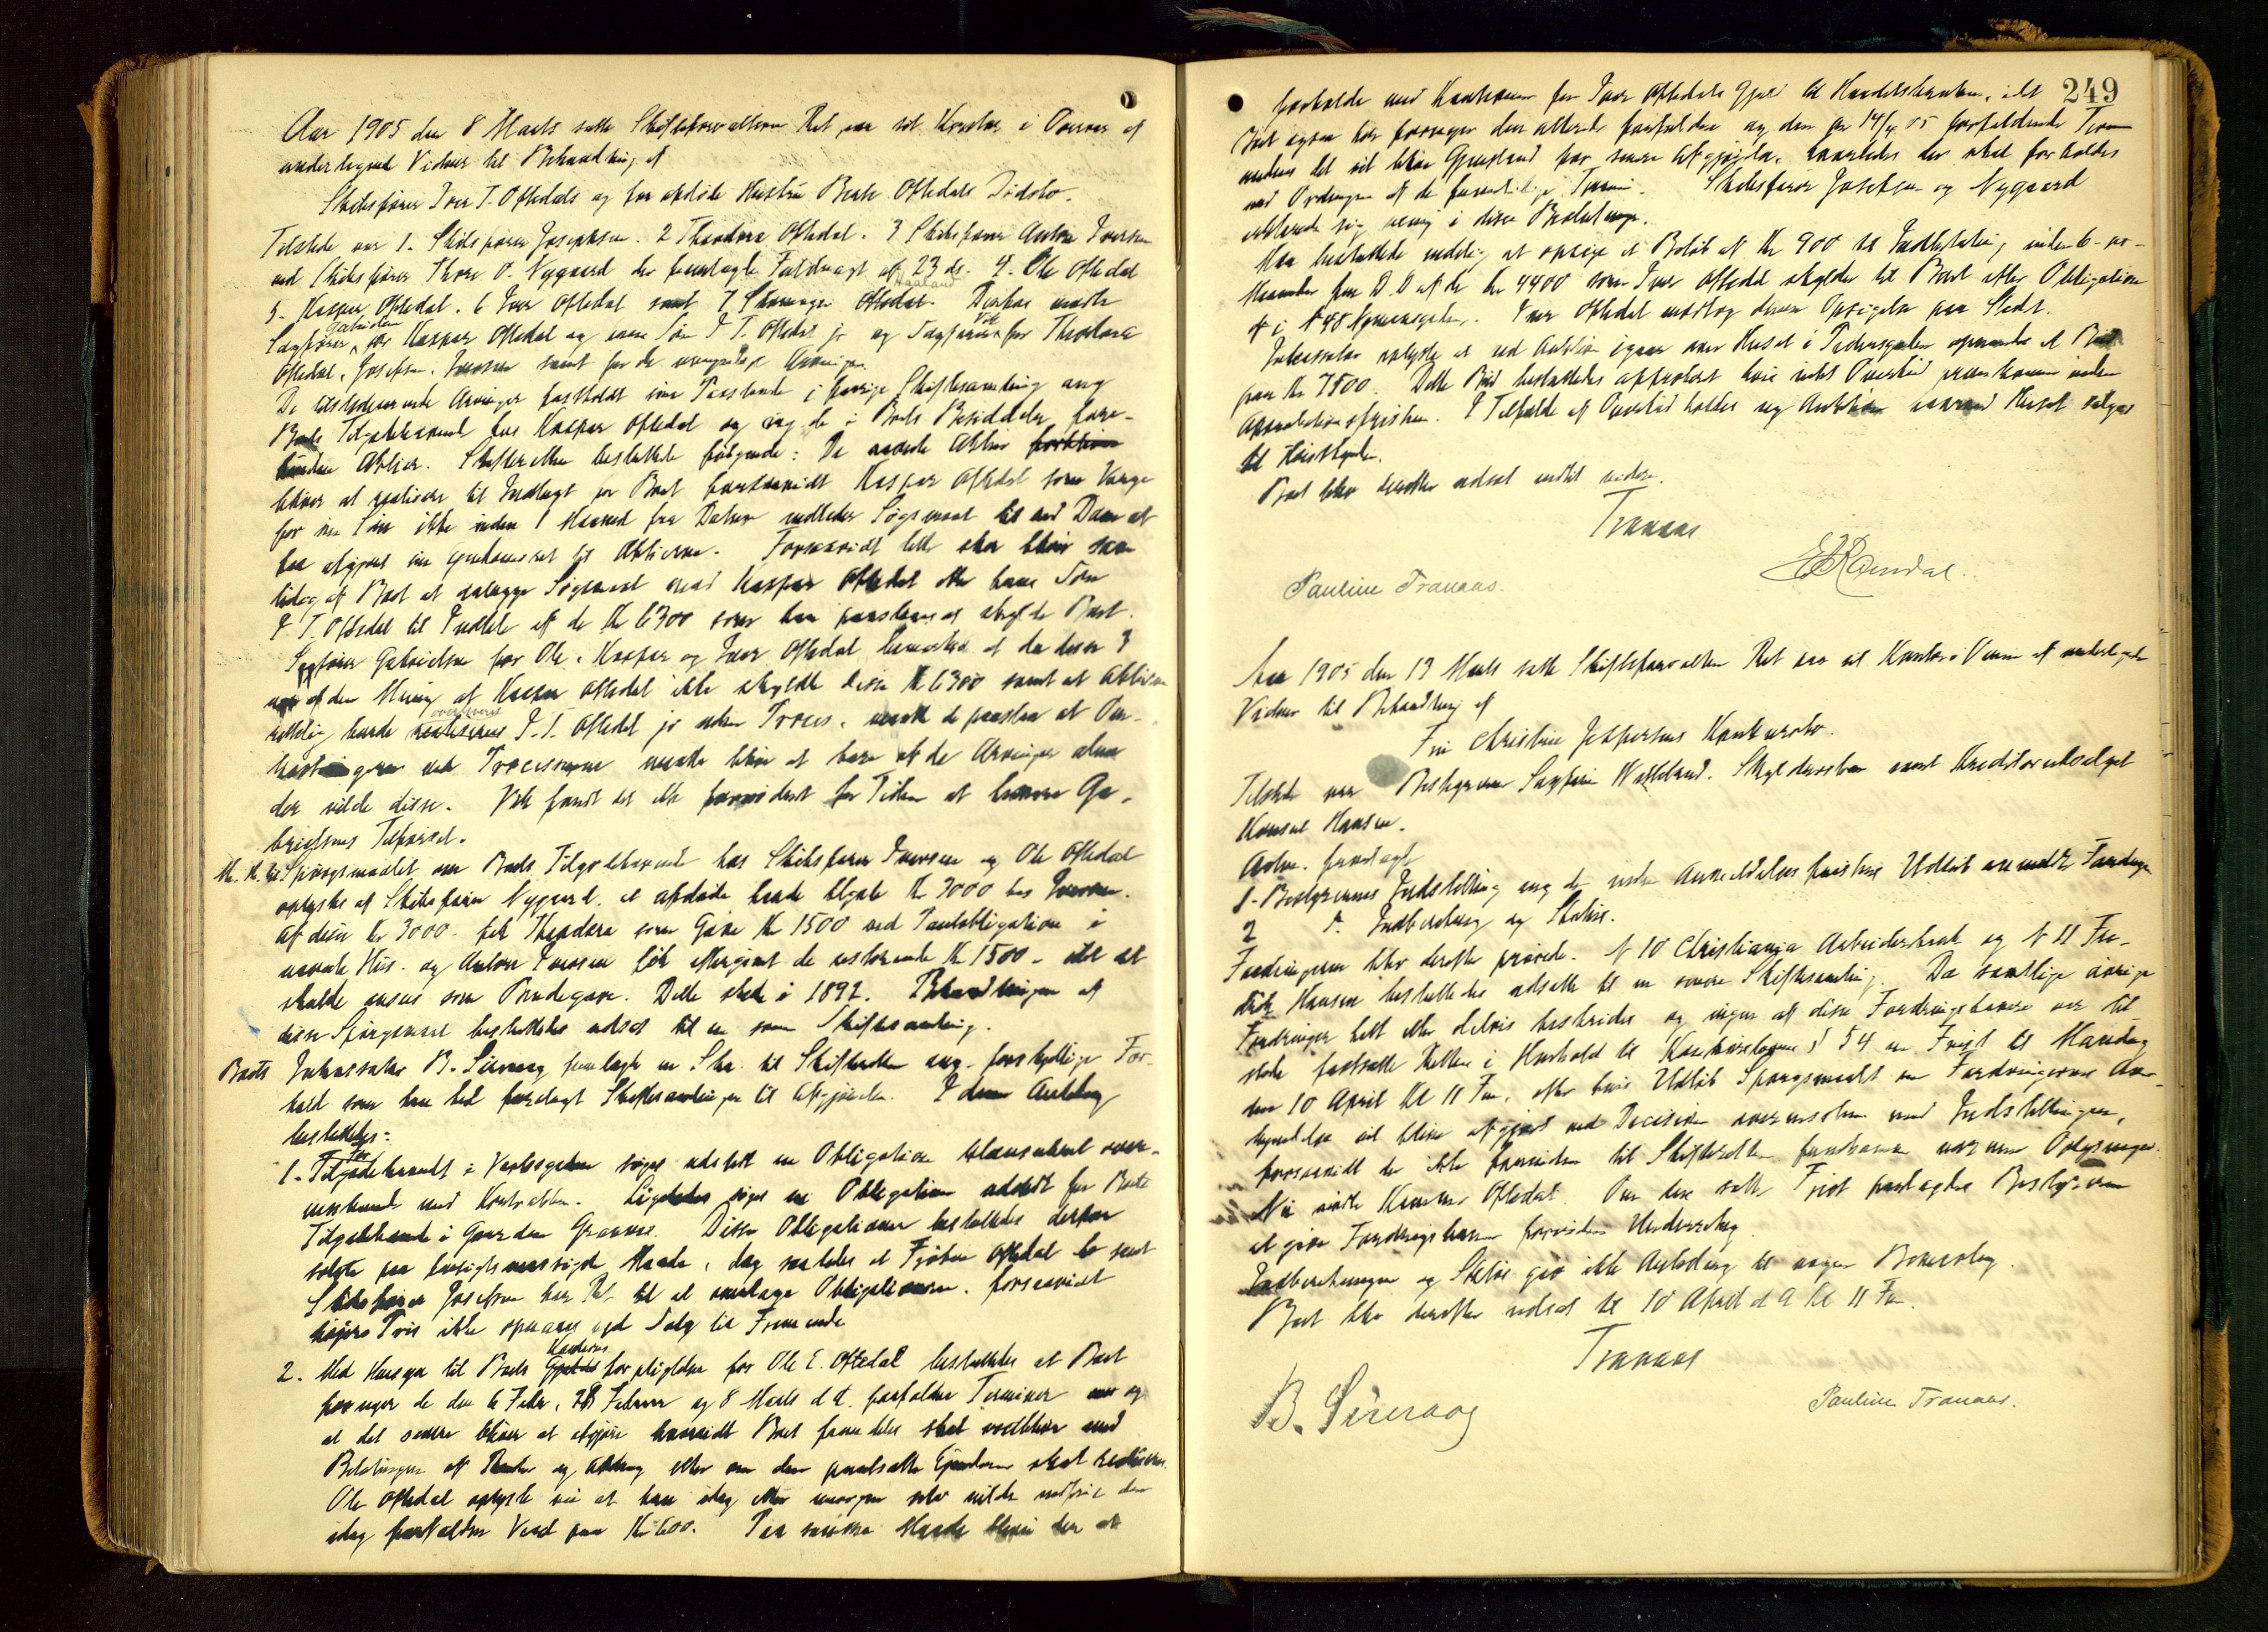 Aar 1905 den 8 Marts satte Skifteforvalteren Ret paa sit Kontor i Overvær af
undertegnede Vidner til Behandling af
Skibsfører Iver T. Oftedals og før afdøde Hustru Berte Oftedals Dødsbo.
Tilstede var 1. Skibsfører Josephsen. 2 Theodora Oftedal. 3 Skibsfører Anton Iversen
ved Skibsfører Thore O. Nygaard der fremlagte Fuldmagt af 23 ds. 4. Ole Oftedal
5. Kasper Oftedal. 6 Iver Oftedal samt 7 Oftedal. Desuden mødte
Sagfører Gabrielsen for Kasper Oftedal og hans Søn I T. Oftedal jr og Sagfører Vik for Theodora
Oftedal, Josefsen, Iversen samt for de umyndige Arvinger.
De tilstedeværende Arvinger fastholdt sine Paastande i forrige Skiftesamling ang
Boets Tilgodehavende hos Kasper Oftedal og ang de i Boets Besiddelse værende
Aktier. Skifteretten besluttede følgende: De nævnte Aktier
bliver at realisere til Indtægt for Boet forsaavidt Kasper Oftedal som Værge
for sin Søn ikke inden 1 Maaned fra Dato indleder Søgsmaal til ved Dom at
faa afgjort sin Eiendomsret til Aktierne. Forsaavidt dette sker bliver sam
tidig af Boet at anlægge Søgsmaal mod Kasper Oftedal eller hans Søn
I T. Oftedal til Indtale af de Kr 6300 som han paastaaes at skylde Boet.
Sagfører Gabrielsen for Ole, Kasper og Iver Oftedal bemærkede at da disse 3
var af den Mening at Kasper Oftedal ikke skyldte disse Kr 6300 samt at Aktierne
rettelig burde overleveres I. T. Oftedal jr uden Proces, maatte de paastaa at Om-
kostningerne ved Processerne maatte blive at bære af de Arvinger alene
der vilde disse. Vik fandt det ikke fornødent for Tiden at besvare Ga-
brielsens Tilførsel.
M. H. til Spørgsmaalet om Boets Tilgodehavende hos Skibsfører Iversen og Ole Oftedal
oplystes af Skibsfører Nygaard, at afdøde havde tilgode Kr 3000 hos Iversen.
Af disse Kr 3000 fik Theodora som Gave Kr 1500 ved Panteobligation i
nævnte Hus. og Anton Iversen fik eftergivet de resterende Kr 1500 - idet det
skulde ansees som Brudegave. Dette skede i 1892. Behandlingen af
disse Spørgsmaal besluttedes udsat til en senere Skiftesamling.
Boets Inkassator B. Sirevaag fremlagde en Skr. til Skifteretten ang. forskjellige For-
hold som han lod forelagt Skiftesamlingen til Afgjørelse. I denne Anledning
besluttedes:
1. For Tilgodehavendet i Verksgaten søges udstedt en Obligation Klausuleret over-
ensstemmende med Kontrakten. Ligeledes søges en Obligation udstedt for Boets
Tilgodehavende i Gaarden Graasse. Disse Obligationer besluttedes derpaa
solgte paa hensigtsmæssigste Maade, dog saaledes at Frøken Oftedal som samt
Skibsfører Josefsen har Ret til at overtage Obligationerne, forsaavidt
høiere Pris ikke opnaaes ved Salg til Fremmede
2. Med Hensyn til Boets Kautions forpligtelse for Ole E. Oftedal besluttedes at Boet
forrenger de den 6 Febr, 28 Februar og 8 Marts d A. forfaldne Terminer og
at det senere bliver at afgjøre hvorvidt Boet fremdeles skal vedblive med
Betalingen af Renter og Afdrag eller om den pantsatte Eiendom skal realiseres.
Ole Oftedal oplyste nu at han idag eller imorgen selv vilde indfri den
idag forfaldne Vexel paa Kr 600. Paa samme Maade bliver der at
249
forholde med Kautionen for Iver Oftedals Gjæld til Handelsbanken, idet
Boet ogsaa her forrenger den allerede forfaldne og den pr 14/4 05 forfaldende Termin
medens det vil blive Gjenstand for senere Afgjørelse, hvorledes der skal forholdes
med Ordningen af de fremtidige Terminer. Skibsfører Josefsen og Nygaard
erklærede sig uenig i disse Beslutninger.
Man besluttede endelig at opsige et Beløb af Kr 900 til Indbetaling inden 6 -
Maaneder fra D. D af de Kr 4400 som Iver Oftedal skylder til Boet efter Obligation
i № 48 Nymansgaden. Iver Oftedal modtog denne Opsigelse paa Stedet.
Inkassator oplyste at ved Auktion igaar over Huset i Pedersgaden opnaaedes et Bud
paa Kr 7500. Dette Bud besluttedes approberet hvis intet Overbud fremkommer inden
Approbationsfristen. I Tilfælde af Overbud holdes ny Auktion hvorved Huset sælges
til Høistbydende.
Boet blev derefter udsat indtil videre.
Tranaas
Pauline Tranaas.
Aar 1905 den 13 Marts satte Skifteforvalteren Ret paa sit Kontor i Overvær af undertegnede
Vidner til Behandling af
Frú Christine Jespersens Konkursbo.
Tilstede var Bestyreren Sagfører Watteland. Skyldnersken samt Kreditorudvalget
Konsul Hansen.
Adm. fremlagde
1. Bestyrerens Indstilling ang de inden Anmeldelsesfristens Udløb anmeldte Fordringer
2 D. Indberetning og Status.
Fordringerne blev derefter prøvede. № 10 Christiania Arbeiderbank og № 11 Fre-
drik Hansen besluttedes udsatte til en senere Skiftesamling. Da samtlige øvrige
Fordringer helt eller delvis bestrides og ingen af disse Fordringshavere var til-
stede fastsatte Retten i Henhold til Konkurslovens § 54 en Frist til Mandag
den 10 April Kl 11 Fm, efter hvis Udløb Spørgsmaalet om Fordringernes Aner-
kjendelse vil blive afgjort ved Decision overensstemmende med Indstillingen,
forsaavidt der ikke forinden til Skifteretten fremkommer nærmere Oplysninger.
Nu mødte Kemner Oftedal. Om den satte Frist paalagdes Bestyreren
at give Fordringshaverne fornøden Underretning.
Indberetningen og Status gav ikke Anledning til nogen Bemerkning.
Boet blev derefter udsat til 10 April d A Kl 11 Fm.
Tranaas
B. Sirevaag
Pauline Tranaas.